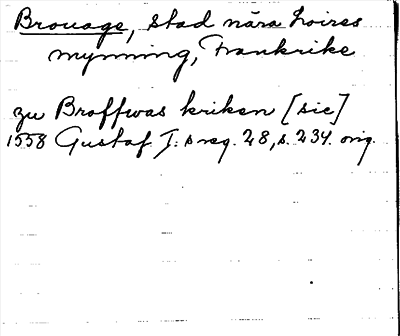 Brouage, stad nära Loires
mynning, Frankrike
zu Broffwas kriken [sic]
1558 Gustaf I:s reg. 28, s. 234. orig.